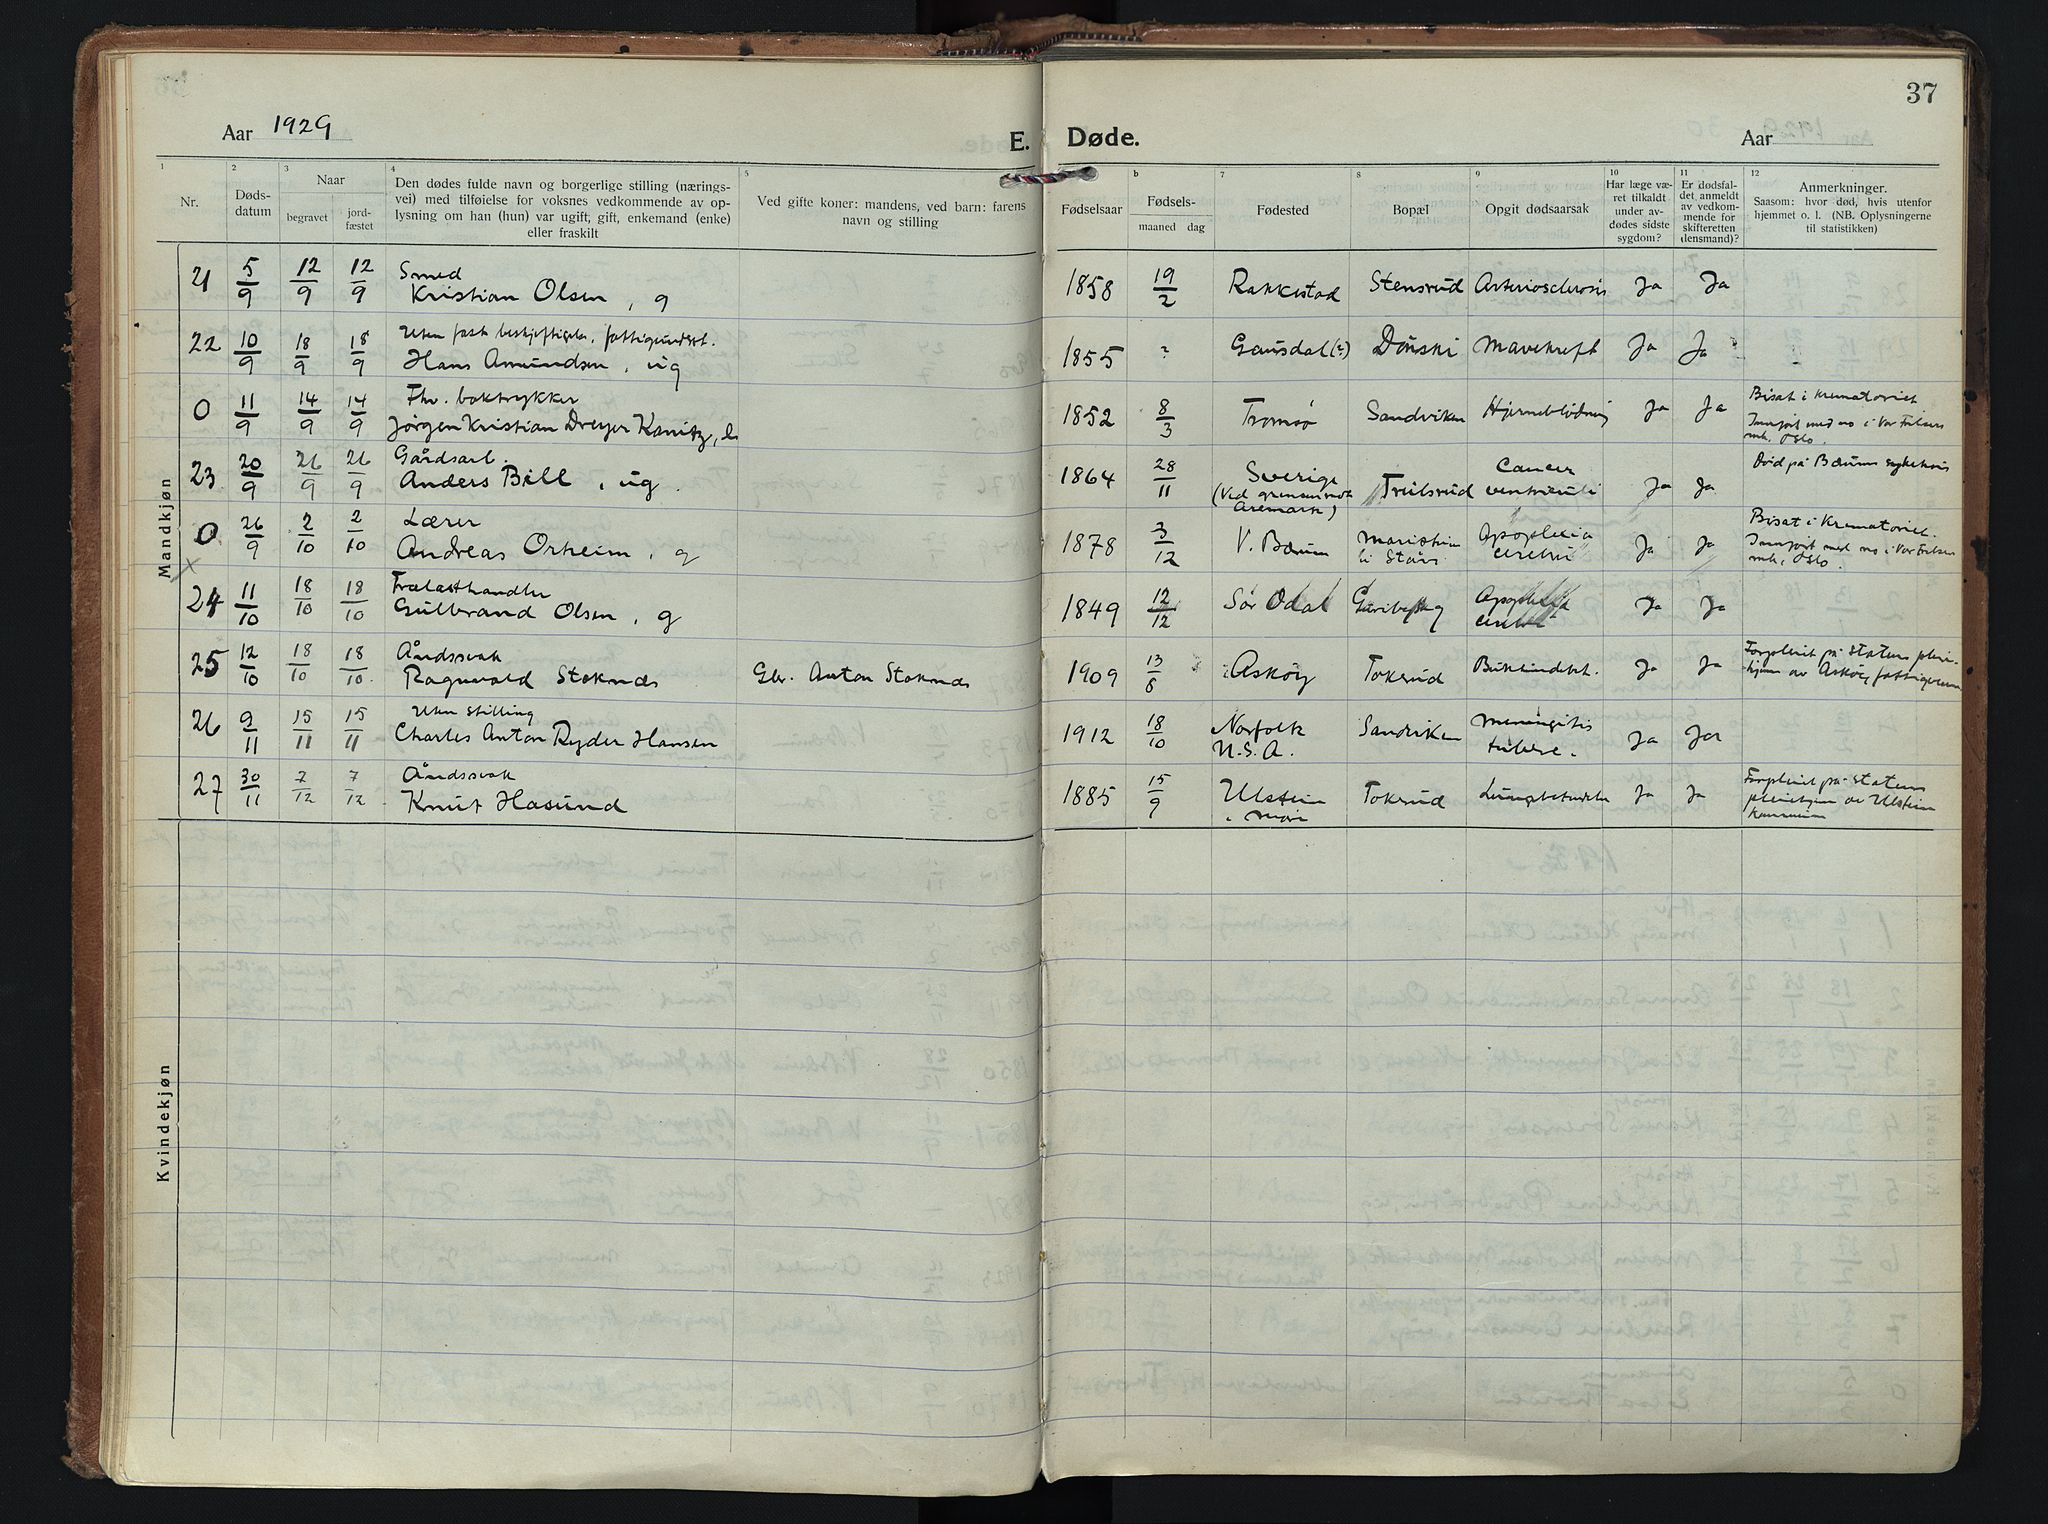 37
Aar 1929
E. Døde.
Aar
1 2 3 4 5 b 7 8 9 10 11 12
Nr.
Dødsdatum
Naar
begravet
jordfæstet
Den dødes fulde navn og borgerlige stilling (næringsvei) med tilføielse for voksnes vedkommende av oplysning om han (hun) var ugift, gift, enkemand (enke) eller fraskilt
Ved gifte koner: mandens, ved barn: farens navn og stilling
Fødselsaar
Fødsels-
maaned dag
Fødested
Bopæl
Opgit dødsaarsak
Har læge været tilkaldt under avdødes sidste sygdom?
Er dødsfaldet anmeldt av vedkommende for skifteretten (lensmand)?
Anmerkninger.
Saasom: hvor død, hvis utenfor hjemmet o. l. (NB. Oplysningerne til statistikken)
Mandkjøn
21 5/9 12/9 12/9 Smed
Kristian Olsen, g 1858 19/2 Rakkestad Stensrud Arteriosclerosis Ja Ja
22 10/9 18/9 18/9 Uten fast beskjeftigelse, fattigunderst.
Hans Amundsen, ug 1855 ? Gausdal (?) Dønski Mavekreft Ja Ja
0 11/9 14/9 14/9 Fhv. boktrykker
Jørgen Kristian Dreyer Kanitz, 1852 8/3 Tromsø Sandviken Hjerneblødning Ja Ja Bisat i Krematoriet
Innført med no i Vor Frelsers
mk, Oslo.
23 20/9 26/9 26/9 Gårdsarb.
Anders Bill, ug. 1864 28/11 Sverige
(Ved grensen mot
Aremark) Trulsrud Cancer
ventriculi Ja Ja Død på Bærum sykehus
0 26/9 2/10 2/10 Lærer
Andreas Orheim, g 1878 3/12 V. Bærum Apoplexia
cerebri Ja Ja Bisat i Krematoriet.
Innført med no i Vor Frelsers
mk, Oslo.
X
24 11/10 18/10 18/10 Trælasthandler
Gulbrand Olsen, g 1849 12/12 Sør Odal Apoplexia
cerebri Ja Ja
25 12/10 18/10 18/10 Åndssvak
Ragnvald Stoknes Gbr. Anton Stoknes 1909 13/8 Askøy Tokerud Bukhindebet. Ja Ja Forpleiet på Statens pleie-
hjem av Askøy fattigvesen
26 9/11 15/11 15/11 Uten stilling
Charles Anton Ryder Hansen 1912 18/10 Norfolk
U.S.A. Sandviken Meningitis
tuberc. Ja Ja
27 30/11 7/12 7/12 Åndssvak
Knut Hasund 1885 15/9 Ulstein
Møre Tokerud Lungebetendelse Ja Ja Forpleiet på Statens
pleiehjem av Ulstein
kommune
Kvindekjøn